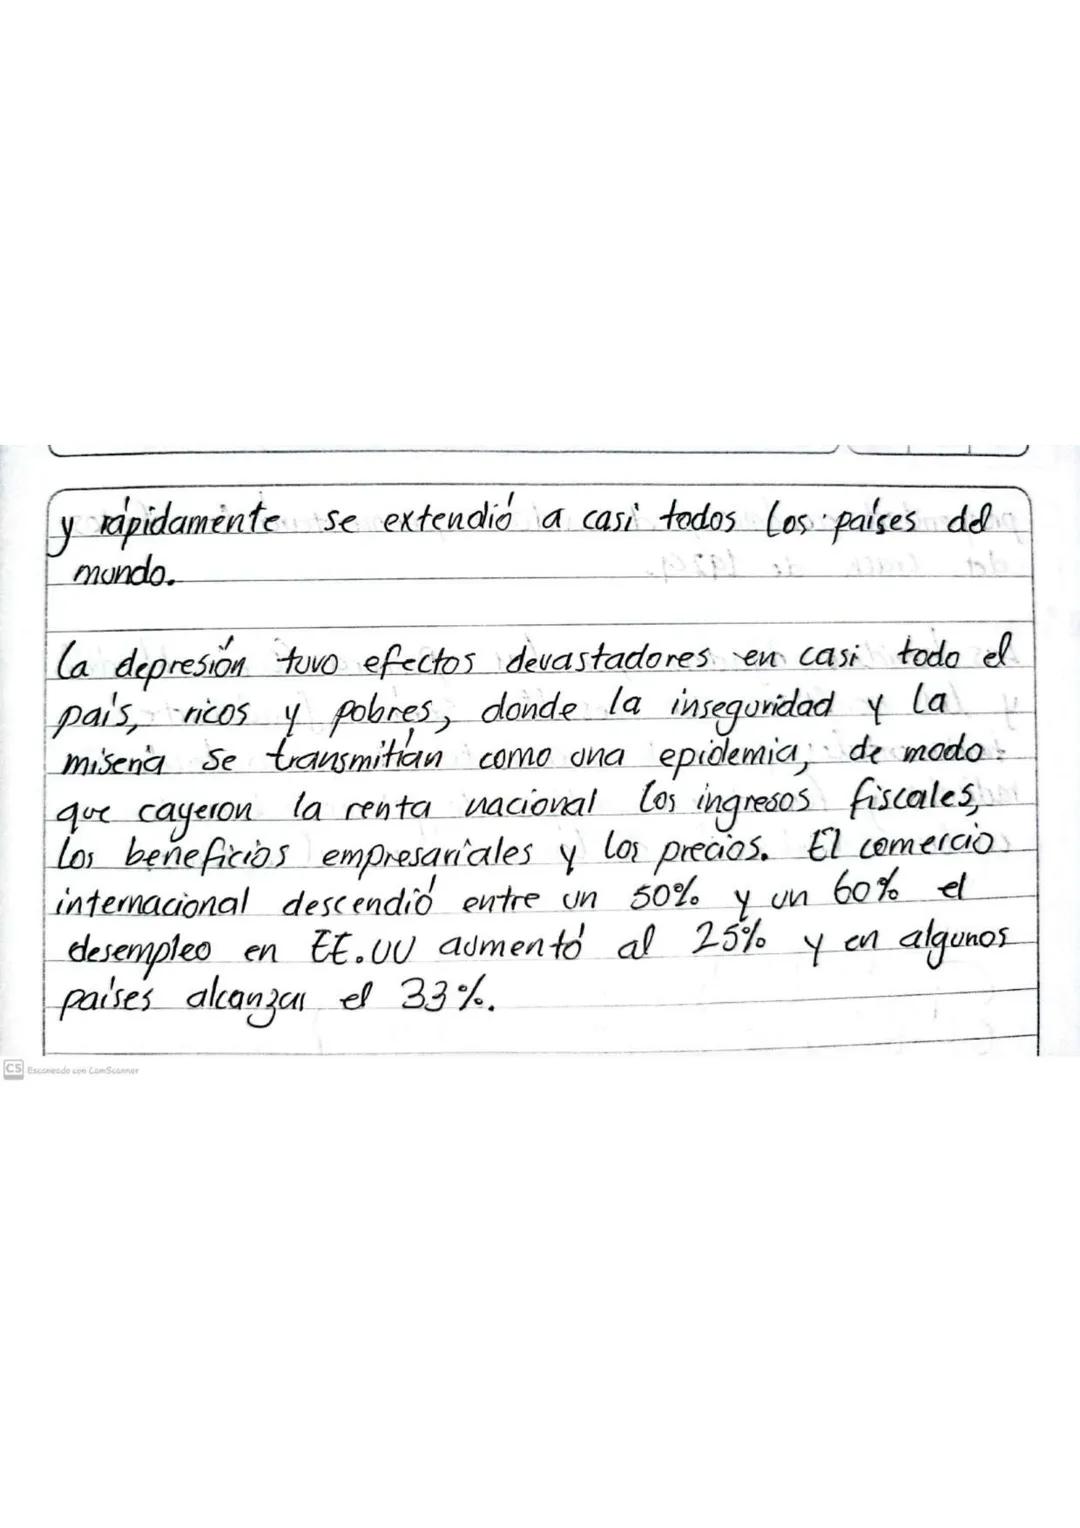 y rápidamente se extendió a casi todos los países del
mundo.
la depresión tuvo efectos devastadores en casi todo el
país, ricos y pobres, donde la inseguridad y la
miseria se transmitían como una epidemia, de modo
que cayeron la renta nacional los ingresos fiscales,
los beneficios empresariales y los precios. El comercio
internacional descendió entre un 50% y un 60% el
desempleo en EE.UU aumentó al 25% y en algunos
países alcanzar el 33%.
CS Escaneado con CamScanner